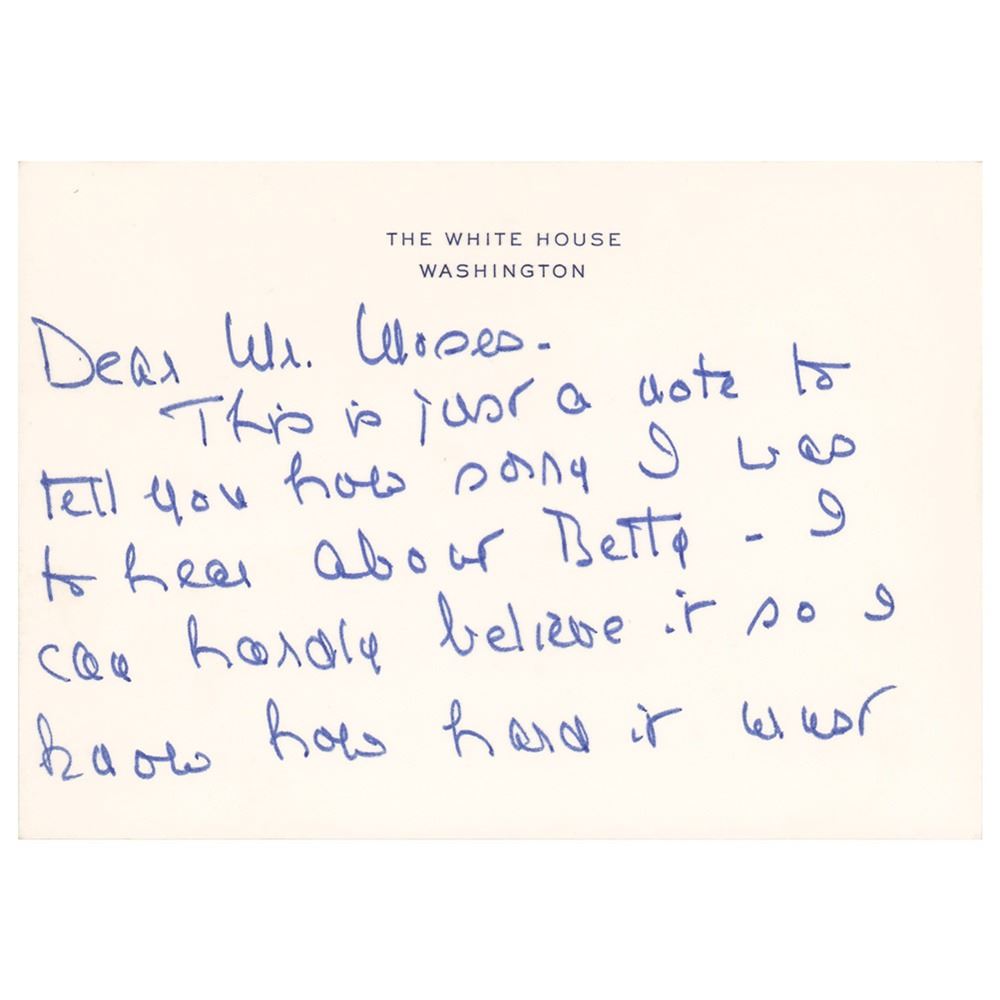 THE WHITE HOUSE
WASHINGTON
Dear Mr. Moses-
This is just a note to
tell you how sorry I was
to hear about Betty - I
can hardly believe it so I
know how hard it must